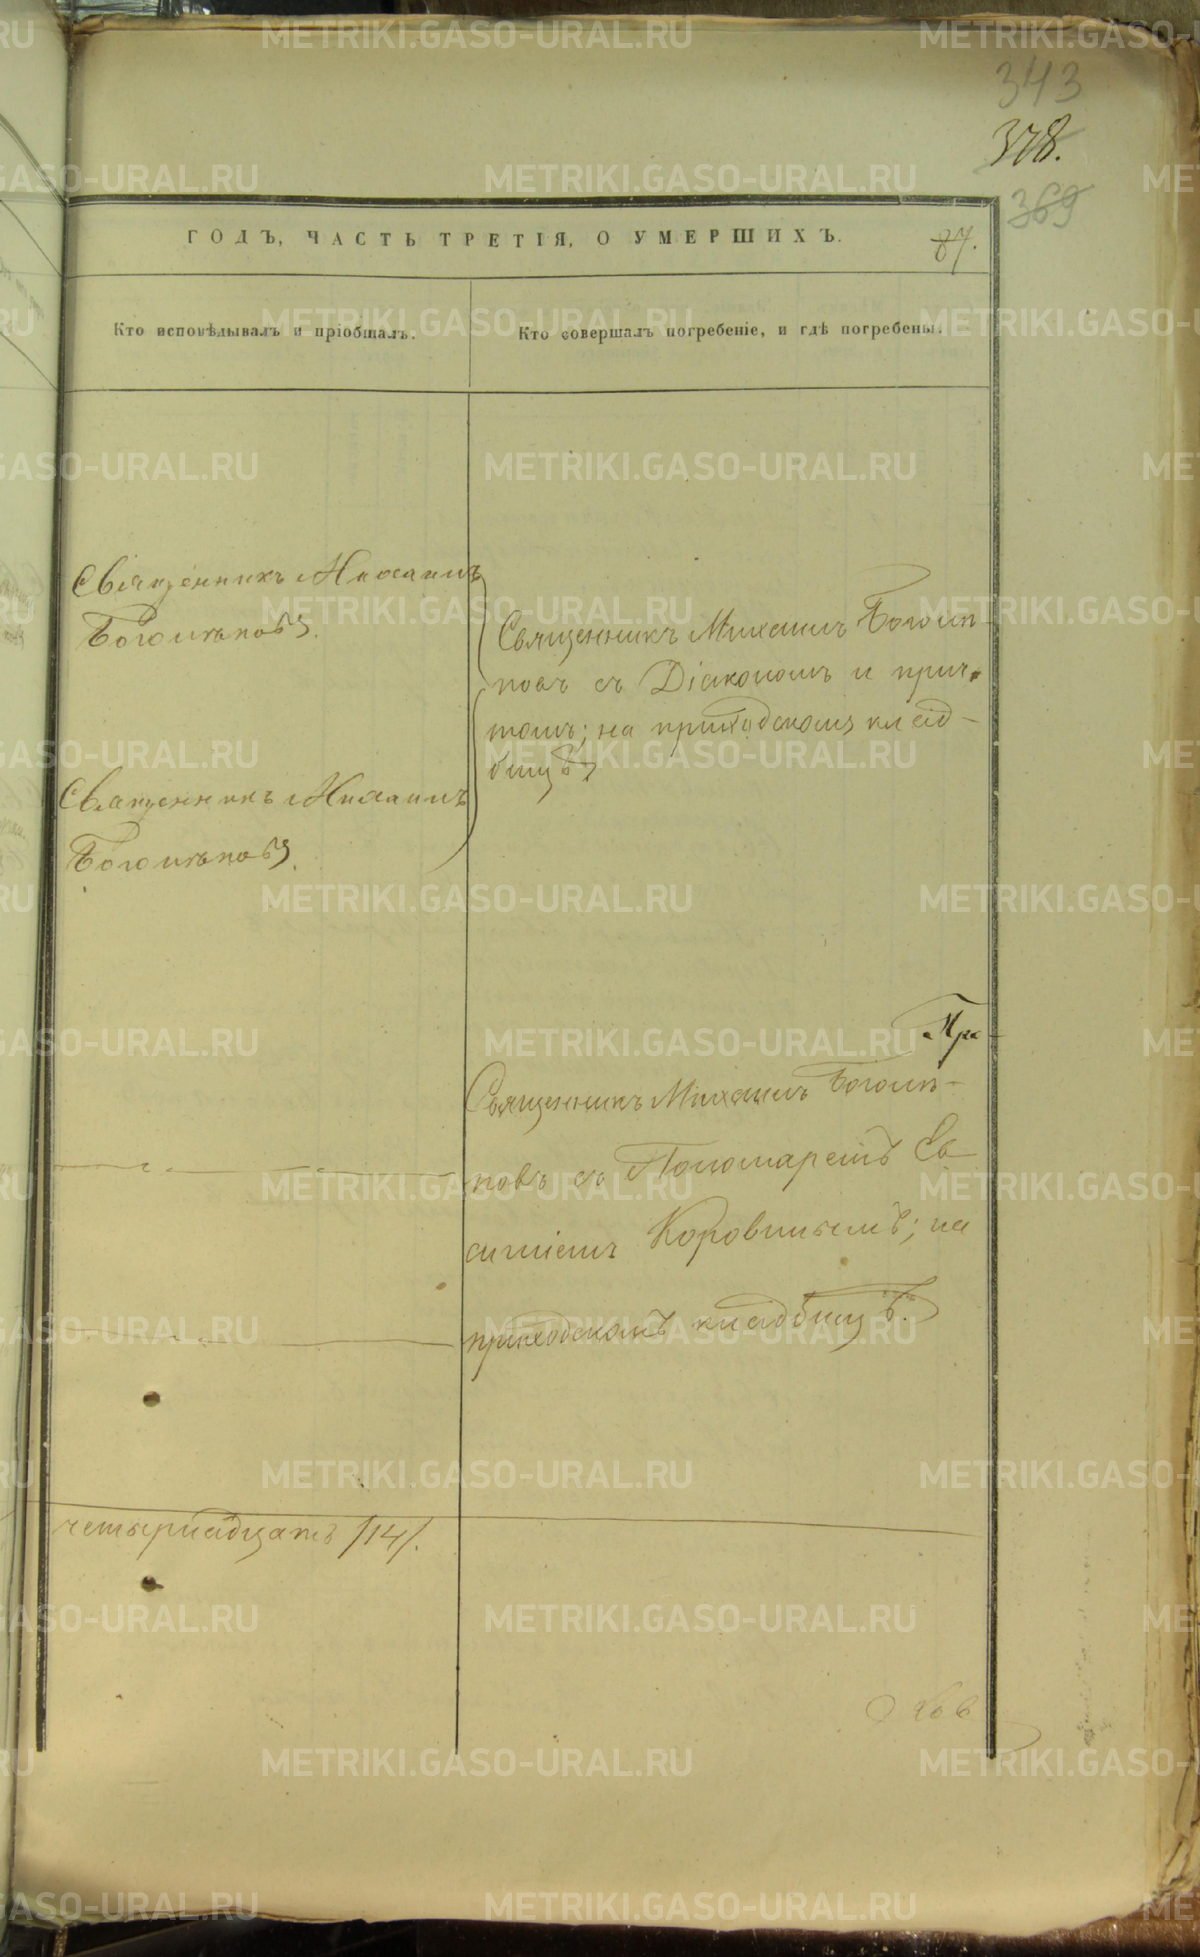 343
378.
369
ГОДЪ, ЧАСТЬ ТРЕТІЯ, О УМЕРШИХЪ.
87.
Кто исповѣдывалъ и пріобщалъ.
Кто совершалъ погребеніе, и гдѣ погребены.
Священникъ Михаилъ
Боголѣповъ.
Священникъ Михаилъ Боголѣ-
повъ съ Діакономъ и прич-
томъ; на приходскомъ клад-
бищѣ
Священникъ Михаилъ
Боголѣповъ.
Священникъ Михаилъ Боголѣ-
повъ съ Пономаремъ Ев
Коровинымъ; на
приходскомъ кладбищѣ.
четырнадцать /14/.
METRIKI.GASO-URAL.RU